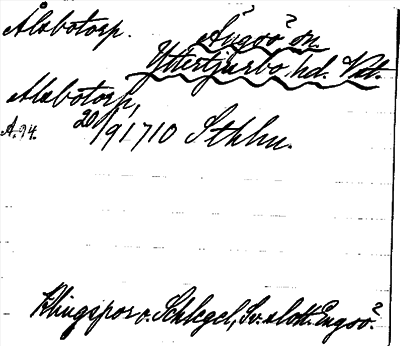 Ålsbotorp. Ängsö sn.
Yttertjurbo hd. Vstm.
Alsbotorp,
A. 94. 20/9 1710 Sthlm.
Klingspor o. Schlegel, Sv. slott. Engsö.